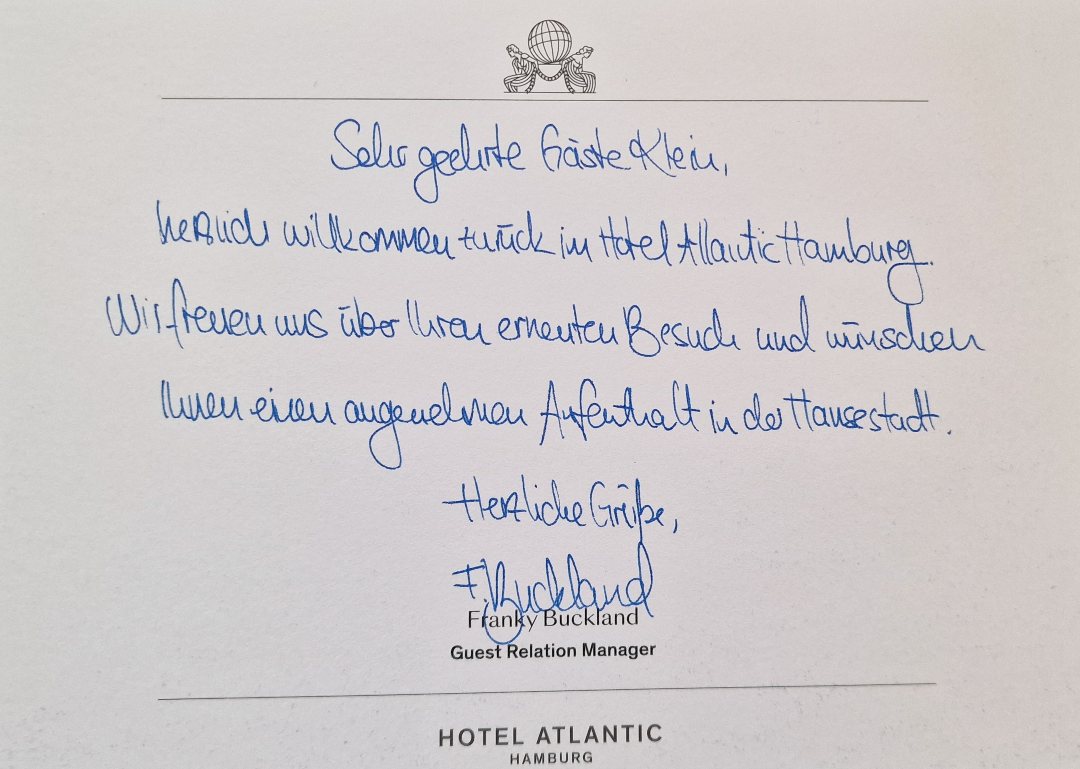 Sehr geehrte Gäste Klein,
herzlich willkommen zurück im Hotel Atlantic Hamburg.
Wir freuen uns über Ihren erneuten Besuch und wünschen
Ihnen einen angenehmen Aufenthalt in der Hansestadt.
Herzliche Grüße,
F. Buckland
Franky Buckland
Guest Relation Manager
HOTEL ATLANTIC
HAMBURG